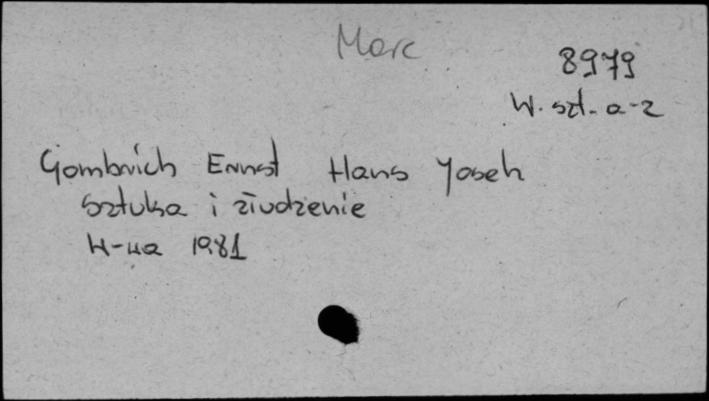 Marc
8979
W. szt. a-z
Gombrich Ernst Hans Yoseh
Sztuka i złudzenie
W-wa 1981